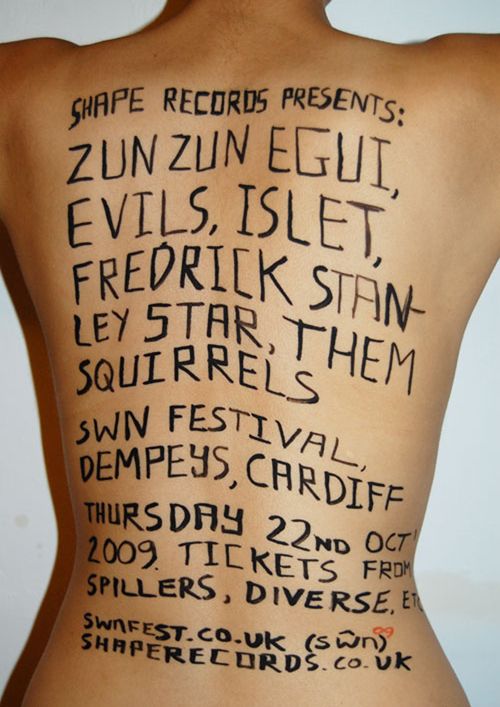 SHAPE RECORDS PRESENTS:
ZUN ZUN EGUI,
EVILS, ISLET,
FREDRICK STAN-
LEY STAR, THEM
SQUIRRELS
SWN FESTIVAL,
DEMPEYS, CARDIFF
THURSDAY 22ND OCT'
2009. TICKETS FROM
SPILLERS, DIVERSE, ETC
SWNFEST.CO.UK (sŵn) 09
SHAPERECORDS.CO.UK